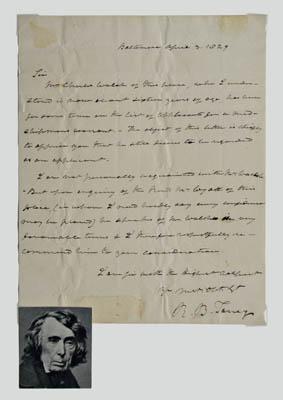 Baltimore April 3. 1829
Sir
Mr Charles Welsh of this place, who I under-
stand is now about sixteen years of age has been
for some time on the list of applicants for a mid-
shipmans warrant. The object of this letter is chiefly
to apprise you that he still desires to be regarded
as an applicant.
I am not personally acquainted with Mr
But upon enquiry of the Revd Mr Wyatt of this
place, (in whom I need hardly say every confidence
may be placed) he speaks of Mr in very
favourable terms & I therefore respectfully re-
commend him to your consideration
I am Sir with the highest respect
Yr Obt St
R. B. Taney